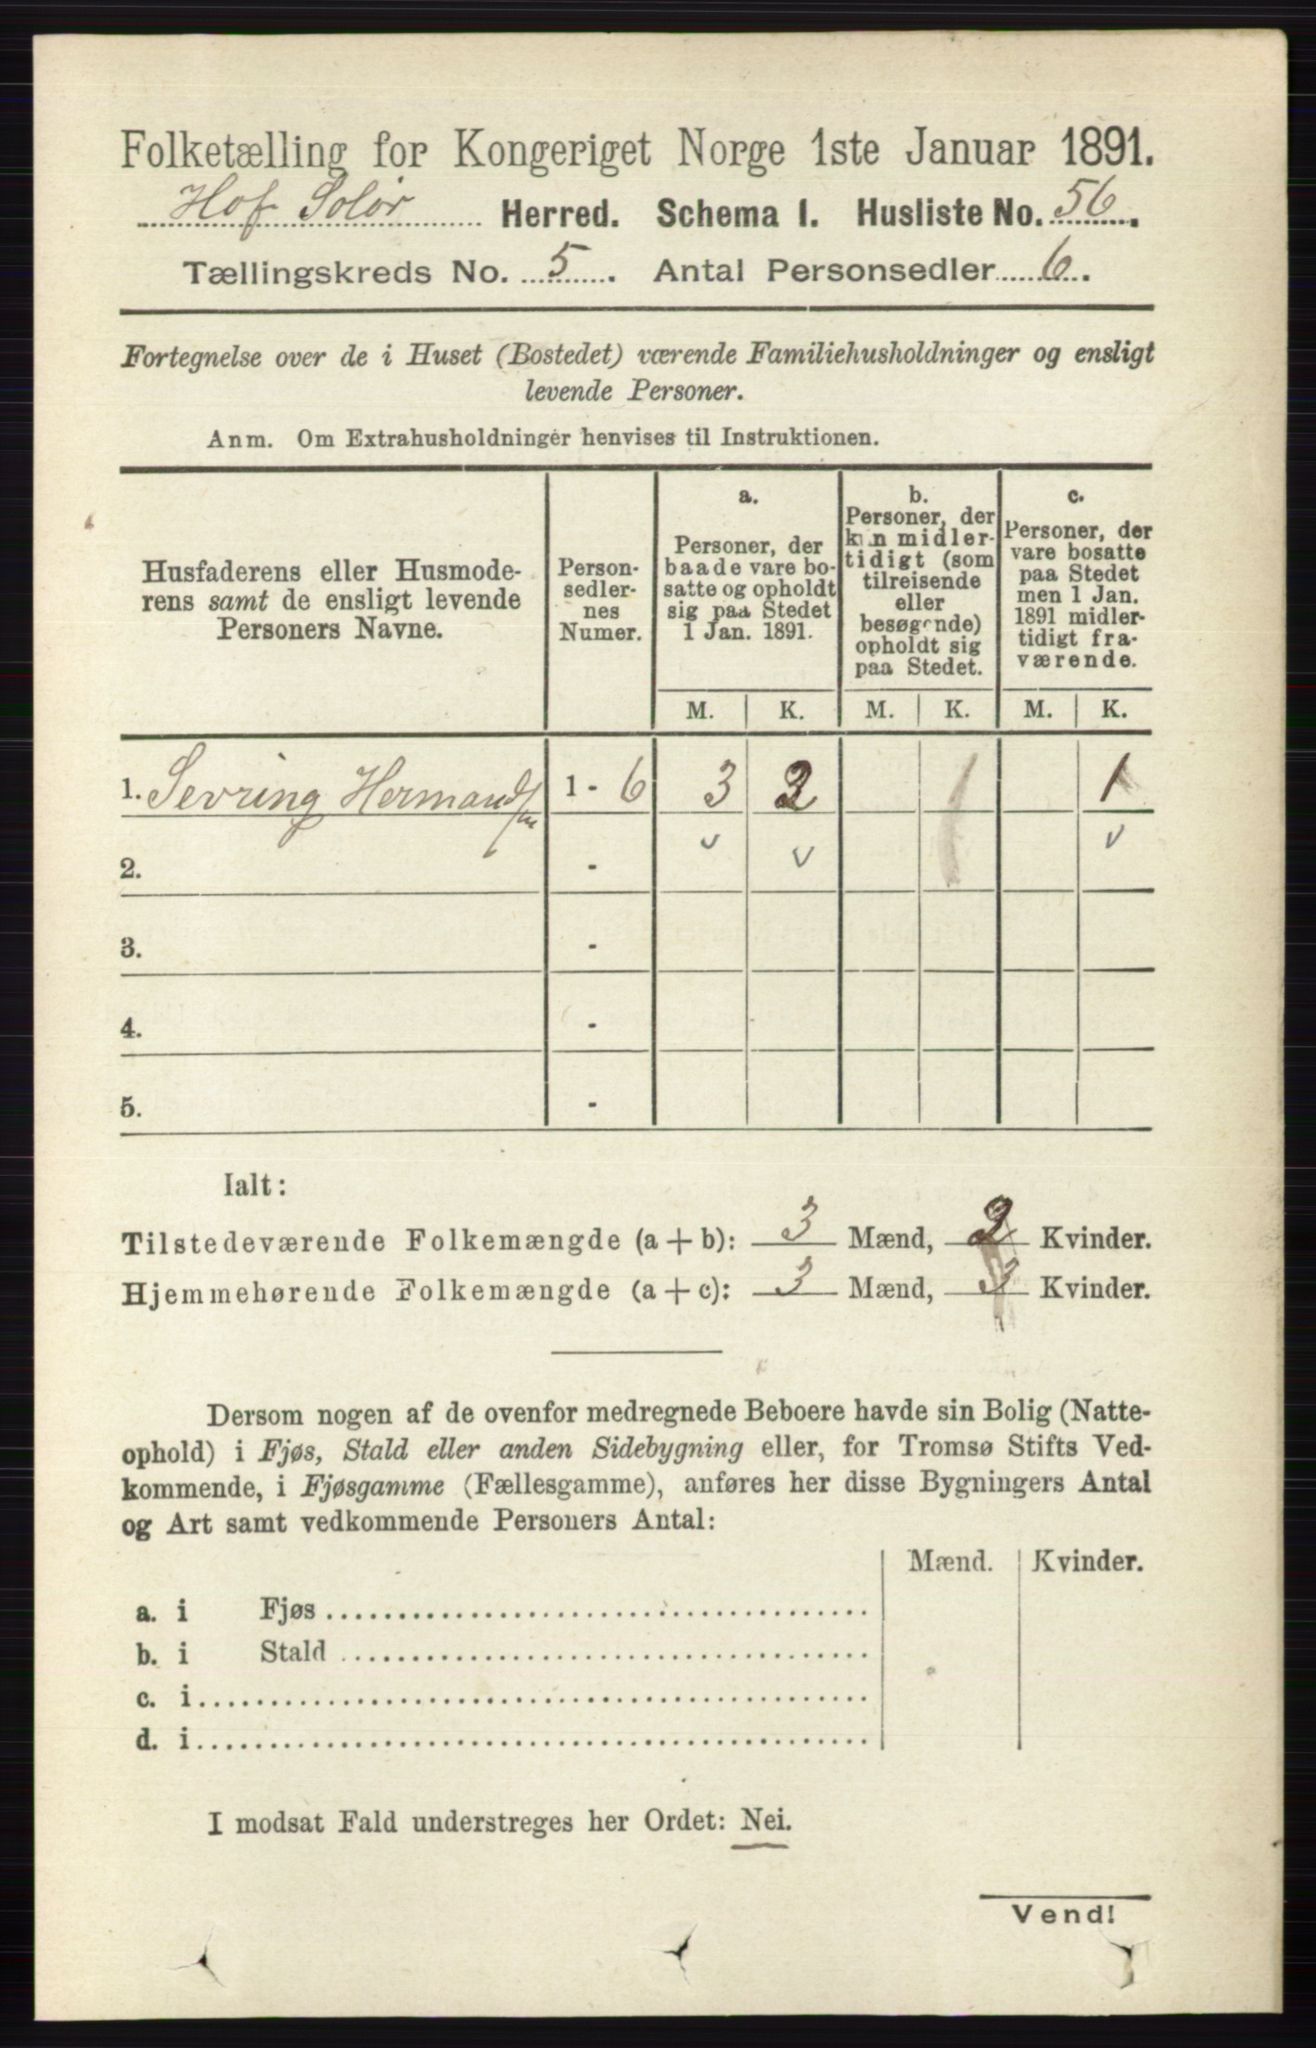 Folketælling for Kongeriget Norge 1ste Januar 1891.
Hof Solør Herred. Schema I. Husliste No. 56.
Tællingskreds No. 5. Antal Personsedler 6.
Fortegnelse over de i Huset (Bostedet) værende Familiehusholdninger og ensligt
levende Personer.
Anm. Om Extrahusholdninger henvises til Instruktionen.
Husfaderens eller Husmode-
rens samt de ensligt levende
Personers Navne.
Person-
sedler-
nes
Numer.
a.
Personer, der
baade vare bo-
satte og opholdt
sig paa Stedet
1 Jan. 1891.
b.
Personer, der
kun midler-
tidigt (som
tilreisende
eller
besøgende)
opholdt sig
paa Stedet.
c.
Personer, der
vare bosatte
paa Stedet
men 1 Jan.
1891 midler-
tidigt fra-
værende.
M. K. M. K. M. K.
1. Sevring Hermands 1 - 6 3 2 1 1
2. - v v v
3. -
4. -
5. -
Ialt:
Tilstedeværende Folkemængde (a + b): 3 Mænd, 2 Kvinder.
Hjemmehørende Folkemængde (a + c): 3 Mænd, 3 Kvinder.
Dersom nogen af de ovenfor medregnede Beboere havde sin Bolig (Natte-
ophold) i Fjøs, Stald eller anden Sidebygning eller, for Tromsø Stifts Ved-
kommende, i Fjøsgamme (Fællesgamme), anføres her disse Bygningers Antal
og Art samt vedkommende Personers Antal:
Mænd. Kvinder.
a. i Fjøs
b. i Stald
c. i
d. i
I modsat Fald understreges her Ordet: Nei.
Vend!